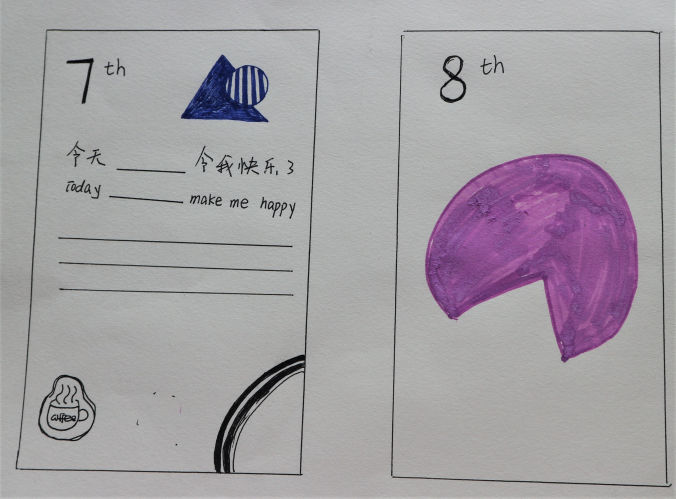 7th
今天 ______ 令我快乐了
Today ______ make me happy
COFFEE
8th